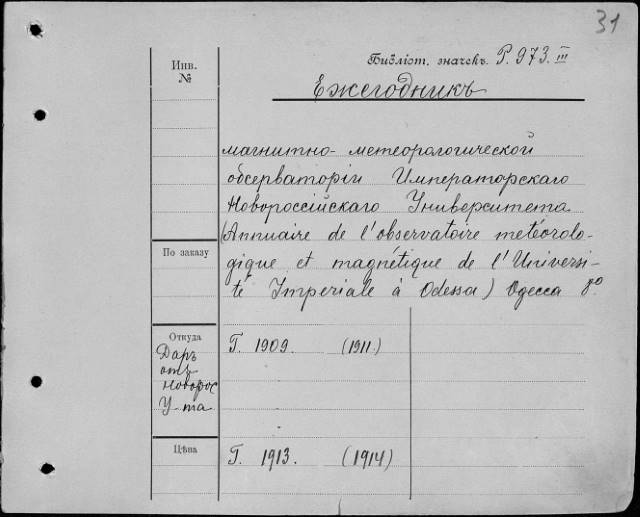 31
Инв.
№
Библіот. значекъ. Р. 973. III
Ежегодникъ
магнитно-метеорологической
обсерваторіи Императорскаго
Новороссійскаго Университета
(Annuaire de l'observatoire météorolo-
gique et magnétique de l'Universi-
té Impériale à Odessa) Одесса 8º.
По заказу
Откуда
Даръ
отъ
Новорос
У-та
Г. 1909. (1911.)
Цѣна
Г. 1913. (1914)